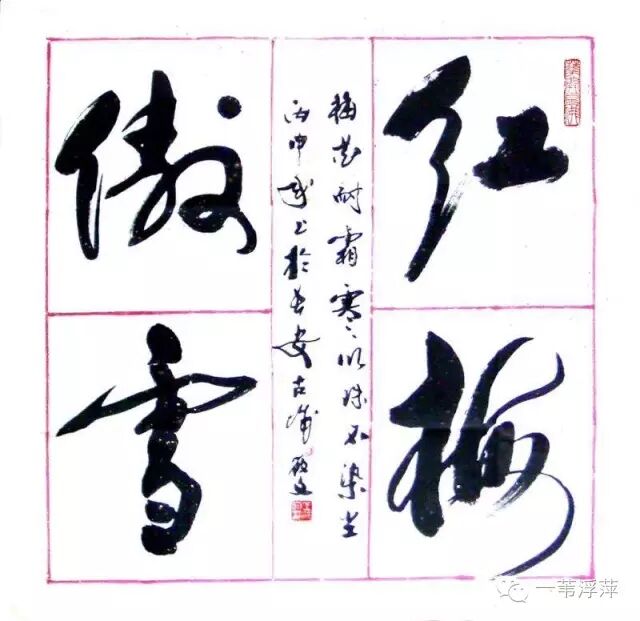 红梅
傲雪
梅花耐霜寒
不染尘
丙申
于长安古城
一苇浮萍